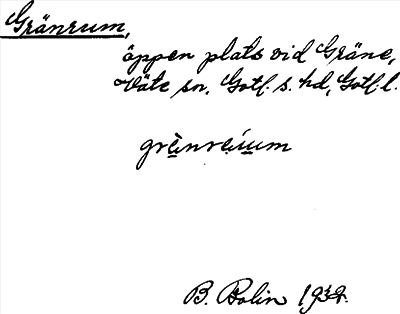 Gränrum,
öppen plats vid Gräne,
Väte sn, Gotl. s. hd, Gotl. l.
grènreium
B. Bolin 1932.